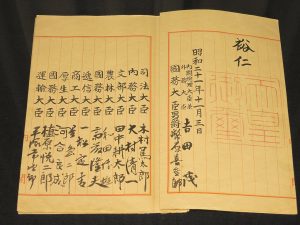 裕仁
昭和二十一年十一月三日
內閣總理大臣兼
外務大臣 吉田茂
國務大臣 男爵 幣原喜重郎
司法大臣 木村篤太郎
內務大臣 大村清一
文部大臣 田中耕太郎
農林大臣 和田博雄
國務大臣 斎藤隆夫
遞信大臣 一松定吉
商工大臣 星島二郎
厚生大臣 河合良成
國務大臣 植原悦二郎
運輸大臣 平塚常次郎